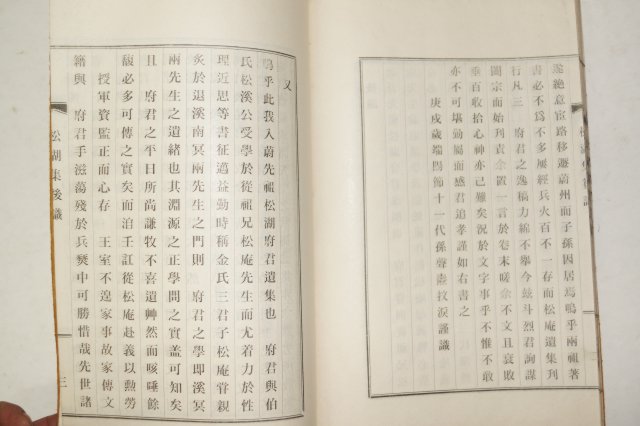 遂絶意宦路移遯蔚州而子孫因居焉嗚乎兩祖著
書必不爲不多屢經兵火百不一存而松庵遺集刊
行凡三 府君之逸稿力綿不擧今玆斗烈君詢謀
闔宗而始刊責余置一言於卷末嗟余不文且衰敗
垂百收拾心神亦已難矣況於文字事乎不惟不敢
亦不可堪勤屬而感君追孝謹如右書之
庚戌歲端陽節十一代孫聲 抆淚謹識
又
嗚乎此我入蔚先祖松湖府君遺集也 府君與伯
氏松溪公受學於從祖兄松庵先生而尤着力於性
理近思等書征邁益勤時稱金氏三君子松庵甞親
炙於退溪南冥兩先生之門則 府君之學即溪冥
兩先生之遺緖也其淵源之正學問之實盖可知矣
且 府君之平日所尚謙牧不喜遺艸然而咳唾餘
馥必多可傳之實矣而洎壬訌從松庵赴義以勳勞
授軍資監正而心存 王室不遑家事故家傳文
籍與 府君手滋蕩殘於兵燹中可勝惜哉先世諸
松湖集後識
三